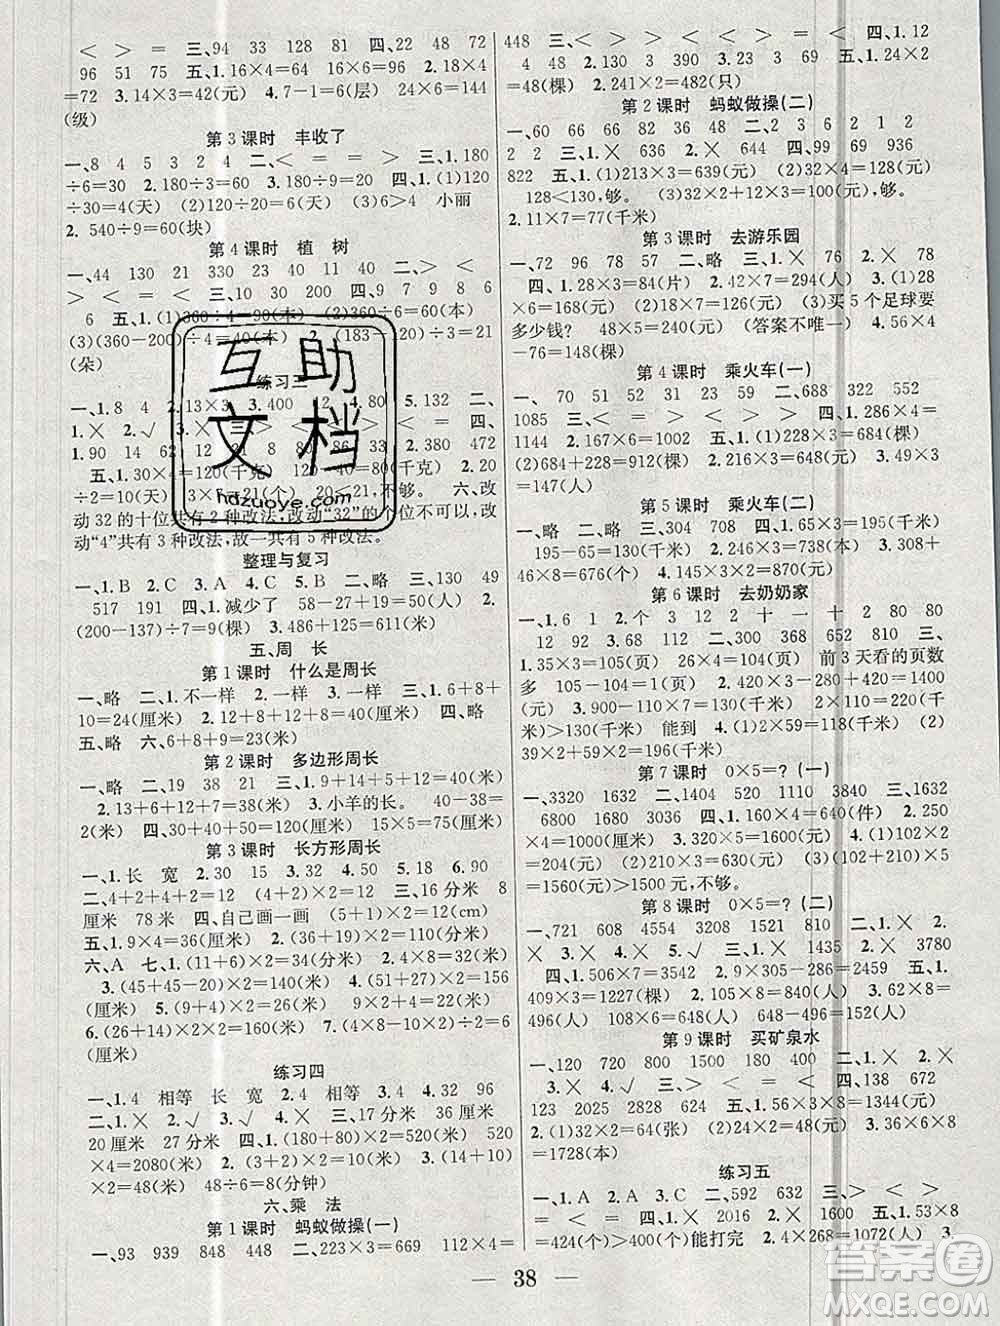 < > > = 三、94 33 128 51 四、22 48 72
96 51 75 五、1.16×4=64 16×6=96 2.18×4
=72 3.14×3=42(元) 4.7-1=6(层) 24×6=144
(级)
第3课时 丰收了
一、8 4 5 3 2 二、< = = > 三、1.180
÷6=30 2.180÷3=60 3.180÷9=20 四、1.(1)120
÷30=4(天) (2)120÷20=6(天) (3)6>4 小丽
2. 540÷9=60(块)
第4课时 植 树
一、44 130 21 330 23 40 11 40 二、> < >
> < = < 三、10 30 200 四、9 7 9 8 6
6 五、1.(1)360÷4=90(本) (2)360÷6=60(本)
(3)(360-200)÷4=40(本) 2.(183-20)÷3=21
(朵)
练习三
一、1.8 4 2.13×3 3.400 12 4.80 5.132 二、
1.× 2.√ 3.× 三、> < > = < = 四、
1.90 14 62 12 21 8 131 2.380 472
五、1.30×4=120(千克) 120-40=80(千克) 2.20
×6=120(元) 3.7×3=21(个) 20<21,不够。 六、改
动32的十位共有2种改法,改动“32”的个位不可以,改
动“4”共有3种改法,故一共有5种改法。
整理与复习
一、1.B 2.C 3.A 4.C 5.B 二、略 三、130 49
517 191 四、1.减少了 58-27+19=50(人) 2.
(200-137)÷7=9(棵) 3.486+125=611(米)
五、周 长
第1课时 什么是周长
一、略 二、1.不一样 2.一样 3.一样 三、1.6+8+
10=24(厘米) 2.12+8+12+8=40(厘米) 四、略
五、略 六、6+8+9=23(厘米)
第2课时 多边形周长
一、略 二、19 38 21 三、1.9+14+5+12=40(米)
2.13+6+12+13=44(米) 3.小羊的长。 40-38=
2(米) 四、30×4=120(厘米) 15×5=75(厘米)
第3课时 长方形周长
一、1.长 宽 2.30 15 3.32 4.24 5.15 6.90
二、4+2+4+2=12 (4+2)×2=12 三、16分米 8
厘米 78米 四、自己画一画 (5+1)×2=12(cm)
五、1.9×4=36(厘米) 2.(36+19)×2=110(厘米)
六、A 七、1.(15+4)×2=38(米) 2.4×8=32(厘米)
3.(45+45-20)×2=140(米) 4.(51+27)×2=156
(米) 5.(9+4)×2=26(米) 9×2+4=22(米)
6.(26+14)×2×2=160(米) 7.(6+9)×2÷5=6
(厘米)
练习四
一、1.4 相等 长 宽 2.4 相等 3.4 4.32 96
二、1.× 2.√ 3.× 4.√ 三、38厘米 28米
20厘米 27分米 四、1.(180+80)×2=520(米) 520
×4=2080(米) 2.(3+2)×2=10(米) 3.(14+10)×
2=48(米) 48÷6=8(分钟)
六、乘 法
第1课时 蚂蚁做操(一)
一、93 939 848 448 二、223×3=669 112×4=
448 三、< > > < < < > > 四、1.12
4 48 2.130 3.390 4.90 880 五、1.24×2
=48(棵) 2.241×2=482(只)
第2课时 蚂蚁做操(二)
一、60 66 88 96 408 900 二、2 2 3 6
2 2 三、1.× 636 2.× 644 四、69 936
822 五、1.(1)213×3=639(元) (2)32×4=128(元)
128<130,够。 (3)32×2+12×3=100(元),够。
2.11×7=77(千米)
第3课时 去游乐园
一、72 96 78 57 二、略 三、1.× 76 2.× 78
四、1.28×3=84(片) 2.42×7=294(人) 3.(1)28
×6=168(元) (2)18×7=126(元) (3)买5个足球要
多少钱? 48×5=240(元) (答案不唯一) 4.56×4
-76=148(棵)
第4课时 乘火车(一)
一、70 51 52 31 36 23 二、688 322 552
三、< = < > < > 四、1.286×4=
1144 2.167×6=1002 五、1.(1)211×4=844(棵)
(2)684+211=895(棵) 2.124×2=248(元) 3.49×3
=147(元)
第5课时 乘火车(二)
一、略 二、略 三、304 708 四、1.65×3=195
195-65=130(元) 2.246×3=738(米) 3.96×6
=576(个) 4.145×3×2=870(人)
第6课时 去奶奶家
一、1.6 1 2.个 3 12 2 十 一 十 2 80 80
12 92 二、64 38 700 208 810 三、
1.35×3=105(页) 26×4=104(页) 前3天看的页数
多 105-104=1(页) 2.420×3-280+420=1400
(元) 3.900-110×7=130(千米) 2×110=220(千
米)>130(千米) 能到 4.(1)2×59=118(千米) (2)
39×2+59×2=196(千米)
第7课时 0×5=?(一)
一、3320 1632 二、1404 520 1110 3840 三、1632
6800 1680 3036 四、1.160×4=640(件) 2.250
×4=1000(米) 3.320×5=1600(元) 4.(1)102×
2=204(元) (2)103×5=515(元) (3)170×9=
1530(元)>1500元,不够。
第8课时 0×5=?(二)
一、721 608 4554 3028 1521 810 二、1.× 2.
× 3.× 4.× 5.√ 三、1.× 1435 2.× 3780
四、1.506×7=3542 2.305×8+19=2459 五、1.
409×3=1227(棵) 2.102×8=816(元) 3.62×8=
496(人) 81×8=648(人) 648-496=152(人)
第9课时 买矿泉水
一、120 720 800 1500 二、1.× 2.×
3.× 4.√ 三、> < > < = > 四、
123 2025 2828 624 五、1.56×3×8=1344(元)
2.(1)32×2=64(张) (2)2×64=128(元) 3.36×6×
8=1728(本)
练习五
一、1.C 2.A 3.A 4.C 二、592 632 三、> < =
> < < 四、1.× 2016 2.× 1600 五、1.53×8
=424(个)>400(个)能打完 2.24×6×7=1008(人) 3.
38
互助文档
hdzuoye.com
答案圈
MXQE.COM